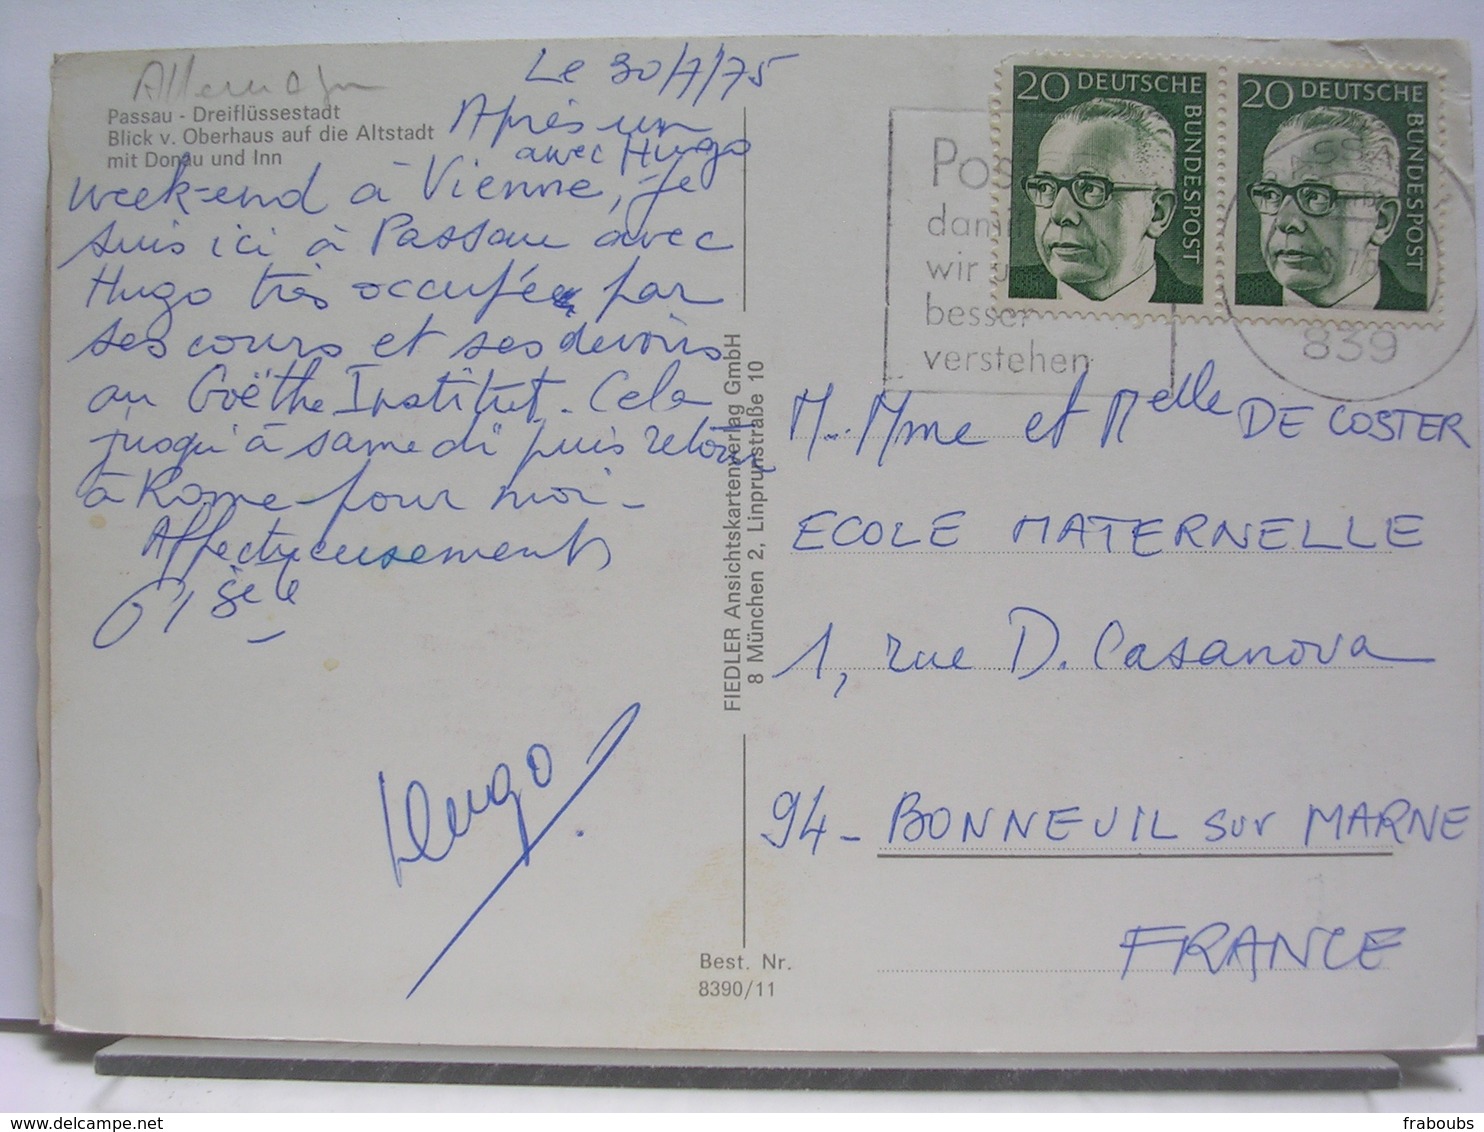 Allemagne
Passau - Dreiflüssestadt
Blick v. Oberhaus auf die Altstadt
mit Donau und Inn
Le 30/7/75
Après un
avec Hugo
week-end à Vienne, je
suis ici à Passau avec
Hugo très occupée par
ses cours et ses devoirs
au Goëthe Institut. Cela
jusqu'à samedi puis retour
à Rome pour moi -
Affectueusement
Gisèle
Hugo
FIEDLER Ansichtskartenverlag GmbH
8 München 2, Linprunstraße 10
Best. Nr.
8390/11
20 DEUTSCHE
BUNDESPOST
20 DEUTSCHE
BUNDESPOST
wir
besser
verstehen
839
M. Mme et Melle DE COSTER
ECOLE MATERNELLE
1, rue D. Casanova
94 - BONNEUIL sur MARNE
FRANCE
delcampe.net
fraboubs